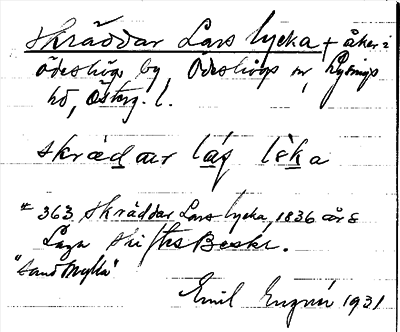 Skräddar Lars lycka, + åker i
Ödeshögs by, Ödeshögs sn, Lysings
hd, Österg. l.
skrädar láş lèka
# 363 Skräddar Lars lycka, 1836 års
Laga skiftes Beskr.
"Sand Mylla"
Emil 1931